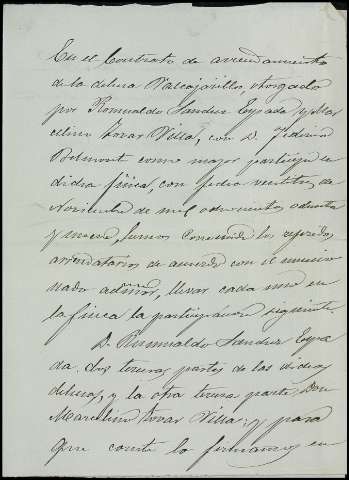 En el Contrato de arrendamiento
de la dehesa Valcajarillo, otorgado
por Romualdo Sanchez Espada y Mar
celino Tovar Villa, con D. Federico
Belmont como mayor participe de
dicha finca, con fecha veintitres de
Noviembre de mil ochocientos ochenta
y nueve, hemos convenido los referidos
arrendatarios de acuerdo con el mencio
nado señor, llevar cada uno en
la finca la participación siguiente.
D. Romualdo Sanchez Espa
da, dos terceras partes de las
dehesa, y la otra tercera parte Don
Marcelino Tovar Villa; y para
que conste lo firmamos en